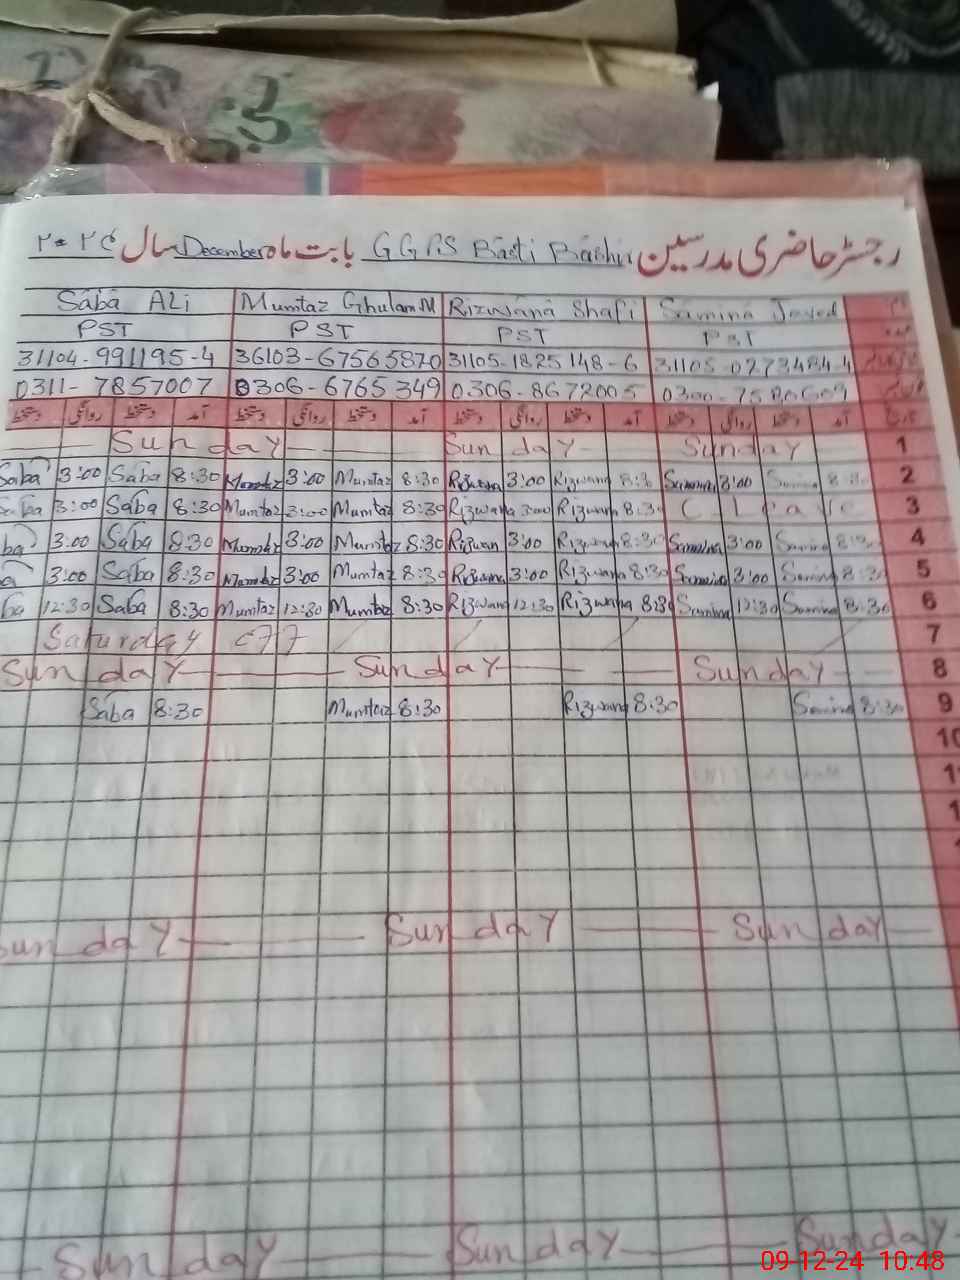 رجسٹر حاضری مدرسین GGPS Basti Bashir بابت ماه December سال ۲۰۲۴
Saba Ali Mumtaz Ghulam M Rizwana Shafi Samina Javed
PST PST PST PST
31104-991195-4 36103-67565870 31105-1825148-6 31105-0273484-4
0311-7857007 0306-6765349 0306-8672005
دستخط روانگی دستخط آمد دستخط روانگی دستخط آمد دستخط روانگی دستخط آمد دستخط روانگی دستخط آمد تاریخ
Sunday Sunday Sunday 1
Saba 3:00 Saba 8:30 Mumtaz 3:00 Mumtaz 8:30 Rizwana 3:00 Rizwana 8:30 Samina 3:00 Samina 8:30 2
Saba 3:00 Saba 8:30 Mumtaz 3:00 Mumtaz 8:30 Rizwana 3:00 Rizwana 8:30 C Leave 3
ba 3:00 Saba 8:30 Mumtaz 3:00 Mumtaz 8:30 Rizwan 3:00 Rizwana 8:30 Samina 3:00 Samina 8:30 4
a 3:00 Saba 8:30 Mumtaz 3:00 Mumtaz 8:30 Rizwana 3:00 Rizwana 8:30 Samina 3:00 Samina 8:30 5
ba 12:30 Saba 8:30 Mumtaz 12:30 Mumtaz 8:30 Rizwana 12:30 Rizwana 8:30 Samina 12:30 Samina 8:30 6
Saturday off 7
Sunday Sunday Sunday 8
Saba 8:30 Mumtaz 8:30 Rizwana 8:30 Samina 8:30 9
10
Sunday Sunday Sunday
Sunday Sunday Sunday
09-12-24 10:48